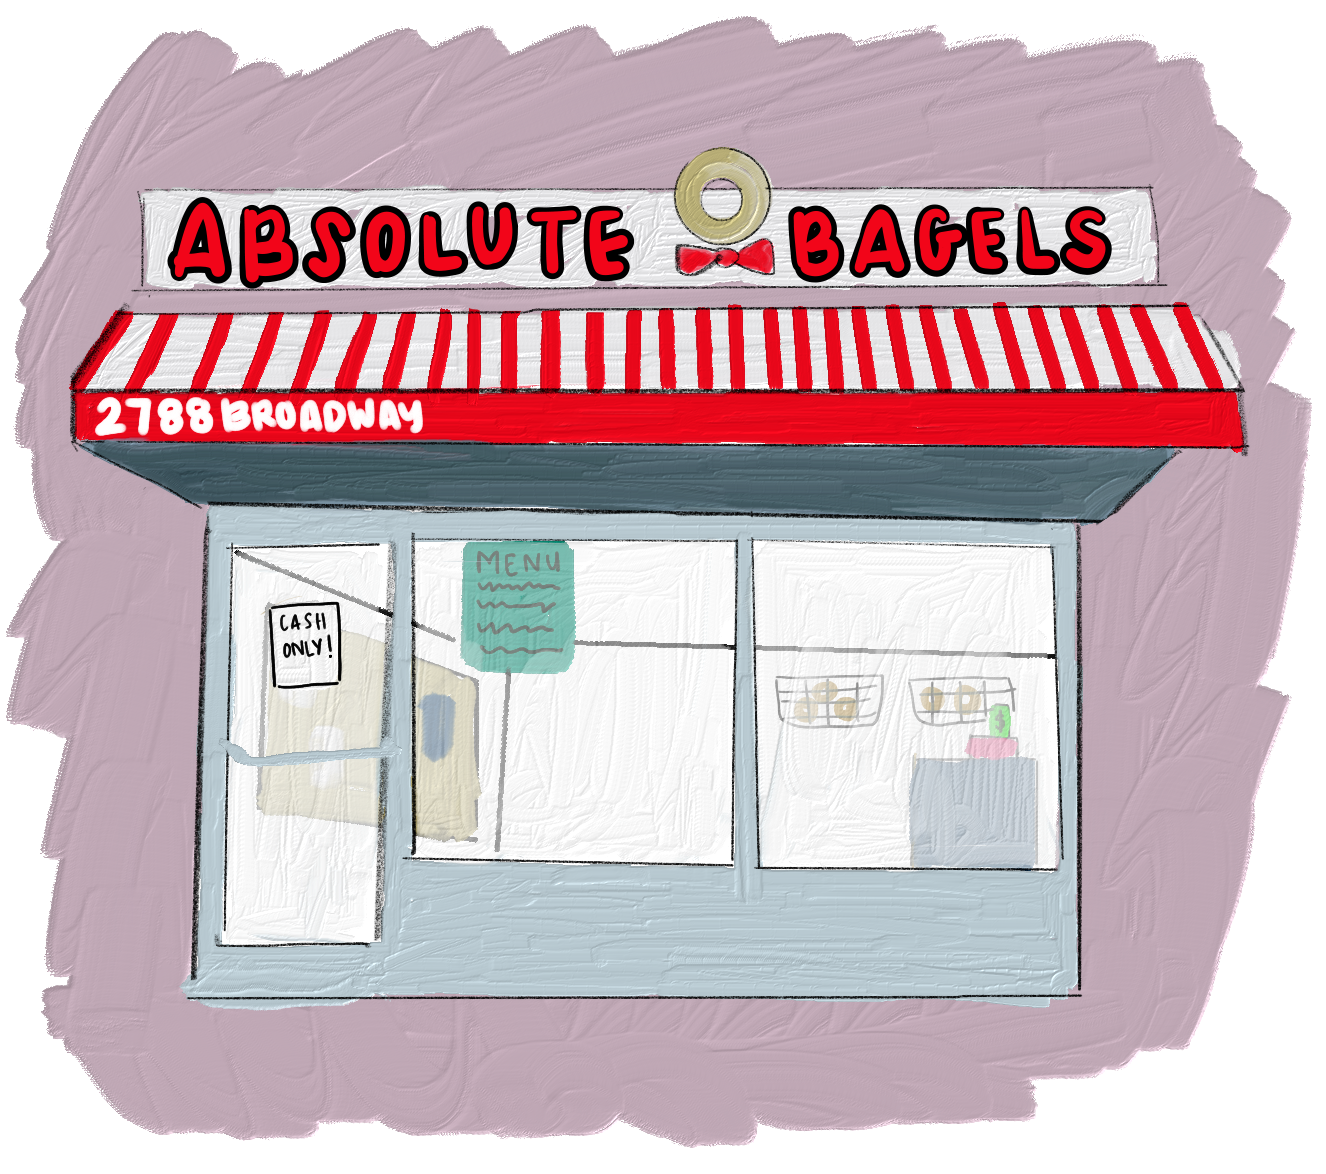 ABSOLUTE BAGELS
2788 BROADWAY
MENU
CASH
ONLY!
$